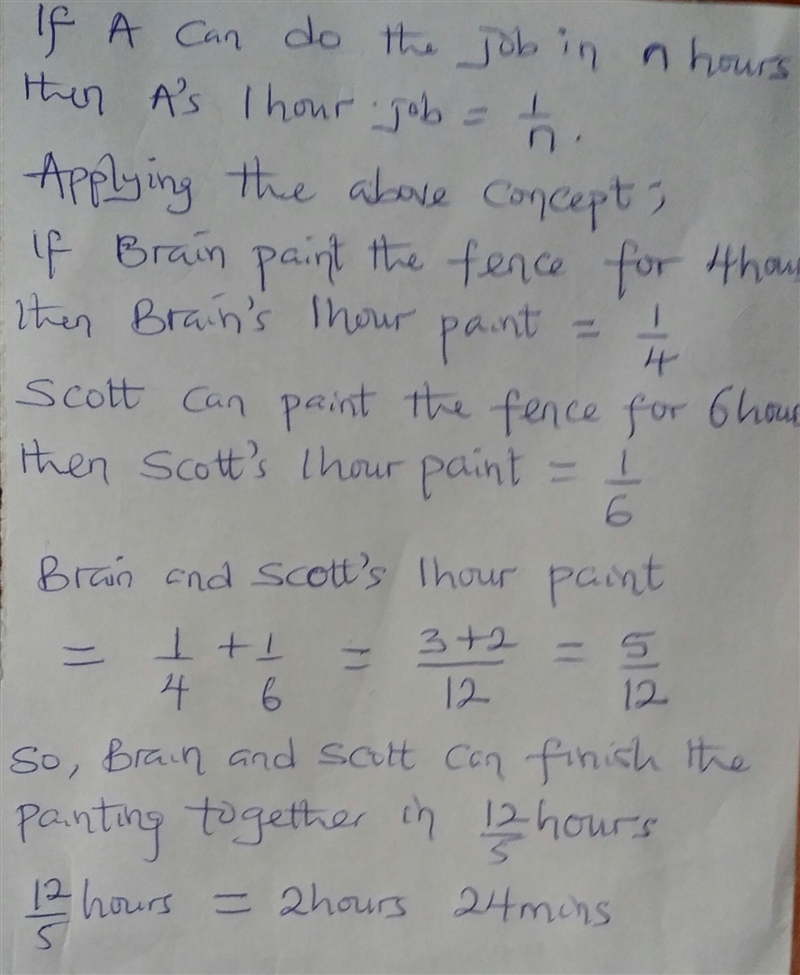 If A can do the job in n hours
then A's 1 hour job = 1/n.
Applying the above concept;
If Brain paint the fence for 4 hou
then Brain's 1 hour paint = 1/4
Scott can paint the fence for 6 hou
then Scott's 1 hour paint = 1/6
Brain and Scott's 1 hour paint
= 1/4 + 1/6 = 3+2/12 = 5/12
So, Brain and Scott can finish the
painting together in 12/5 hours
12/5 hours = 2 hours 24 mins